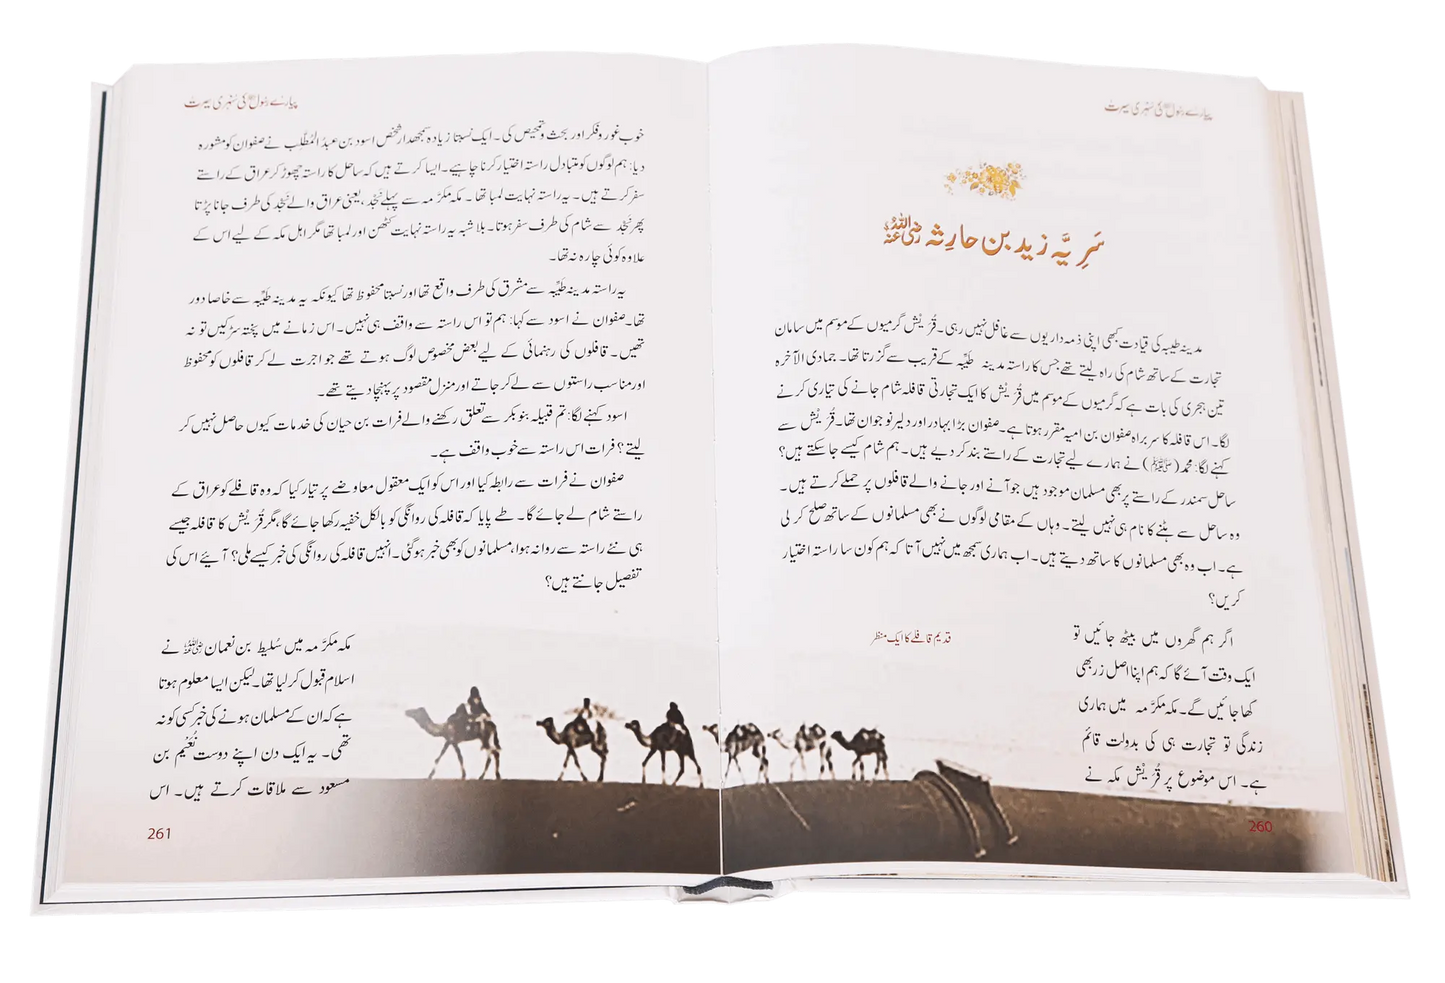 پیارے رسول ﷺ کی سنہری سیرت
سَرِیَّہ زید بن حارِثہ رضی اللہ عنہ
مدینہ طیبہ کی قیادت کبھی اپنی ذمہ داریوں سے غافل نہیں رہی۔ قُرَیْش گرمیوں کے موسم میں سامان
تجارت کے ساتھ شام کی راہ لیتے تھے جس کا راستہ مدینہ طَیِّبہ کے قریب سے گزرتا تھا۔ جمادی الآخرہ
تین ہجری کی بات ہے کہ گرمیوں کے موسم میں قُرَیْش کا ایک تجارتی قافلہ شام جانے کی تیاری کرنے
لگا۔ اس قافلہ کا سربراہ صفوان بن امیہ مقرر ہوتا ہے۔ صفوان بڑا بہادر اور دلیر نوجوان تھا۔ قُرَیْش سے
کہنے لگا: محمد (ﷺ) نے ہمارے لیے تجارت کے راستے بند کر دیے ہیں۔ ہم شام کیسے جا سکتے ہیں؟
ساحل سمندر کے راستے پر بھی مسلمان موجود ہیں جو آنے اور جانے والے قافلوں پر حملے کرتے ہیں۔
وہ ساحل سے ہٹنے کا نام ہی نہیں لیتے۔ وہاں کے مقامی لوگوں نے بھی مسلمانوں کے ساتھ صلح کر لی
ہے۔ اب وہ بھی مسلمانوں کا ساتھ دیتے ہیں۔ اب ہماری سمجھ میں نہیں آتا کہ ہم کون سا راستہ اختیار
کریں؟
اگر ہم گھروں میں بیٹھ جائیں تو
ایک وقت آئے گا کہ ہم اپنا اصل زر بھی
کھا جائیں گے۔ مکہ مکرّمہ میں ہماری
زندگی تو تجارت ہی کی بدولت قائم
ہے۔ اس موضوع پر قُرَیْش مکہ نے
قدیم قافلے کا ایک منظر
260
پیارے رسول ﷺ کی سنہری سیرت
خوب غور و فکر اور بحث و تمحیص کی۔ ایک نسبتاً زیادہ سمجھدار شخص اسود بن عبدُ المُطَّلِب نے صفوان کو مشورہ
دیا: ہم لوگوں کو متبادل راستہ اختیار کرنا چاہیے۔ ایسا کرتے ہیں کہ ساحل کا راستہ چھوڑ کر عراق کے راستے
سفر کرتے ہیں۔ یہ راستہ نہایت لمبا تھا۔ مکہ مکرّمہ سے پہلے نَجْد، یعنی عراق والے نَجْد کی طرف جانا پڑتا
پھر نَجْد سے شام کی طرف سفر ہوتا۔ بلاشبہ یہ راستہ نہایت کٹھن اور لمبا تھا مگر اہل مکہ کے لیے اس کے
علاوہ کوئی چارہ نہ تھا۔
یہ راستہ مدینہ طَیِّبہ سے مشرق کی طرف واقع تھا اور نسبتاً محفوظ تھا کیونکہ یہ مدینہ طَیِّبہ سے خاصا دور
تھا۔ صفوان نے اسود سے کہا: ہم تو اس راستہ سے واقف ہی نہیں۔ اس زمانے میں پختہ سڑکیں تو نہ
تھیں۔ قافلوں کی رہنمائی کے لیے بعض مخصوص لوگ ہوتے تھے جو اجرت لے کر قافلوں کو محفوظ
اور مناسب راستوں سے لے کر جاتے اور منزل مقصود پر پہنچا دیتے تھے۔
اسود کہنے لگا: تم قبیلہ بنو بکر سے تعلق رکھنے والے فرات بن حیان کی خدمات کیوں حاصل نہیں کر
لیتے؟ فرات اس راستہ سے خوب واقف ہے۔
صفوان نے فرات سے رابطہ کیا اور اس کو ایک معقول معاوضے پر تیار کیا کہ وہ قافلے کو عراق کے
راستے شام لے جائے گا۔ طے پایا کہ قافلہ کی روانگی کو بالکل خفیہ رکھا جائے گا، مگر قُرَیْش کا قافلہ جیسے
ہی نئے راستہ سے روانہ ہوا، مسلمانوں کو بھی خبر ہو گئی۔ انہیں قافلہ کی روانگی کی خبر کیسے ملی؟ آئیے اس کی
تفصیل جانتے ہیں؟
مکہ مکرّمہ میں سُلیط بن نعمان رضی اللہ عنہ نے
اسلام قبول کر لیا تھا۔ لیکن ایسا معلوم ہوتا
ہے کہ ان کے مسلمان ہونے کی خبر کسی کو نہ
تھی۔ یہ ایک دن اپنے دوست نُعَیْم بن
مسعود سے ملاقات کرتے ہیں۔ اس
261